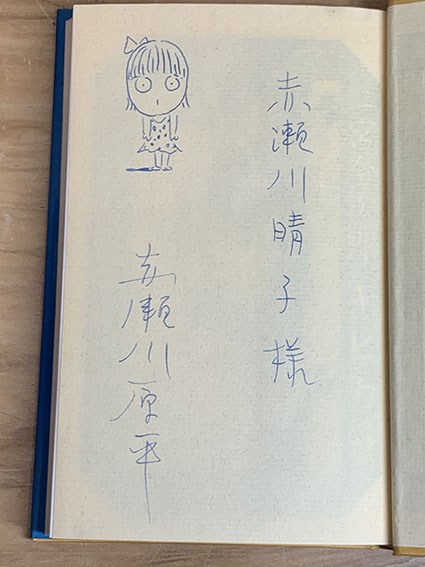 赤瀬川晴子様
赤瀬川原平